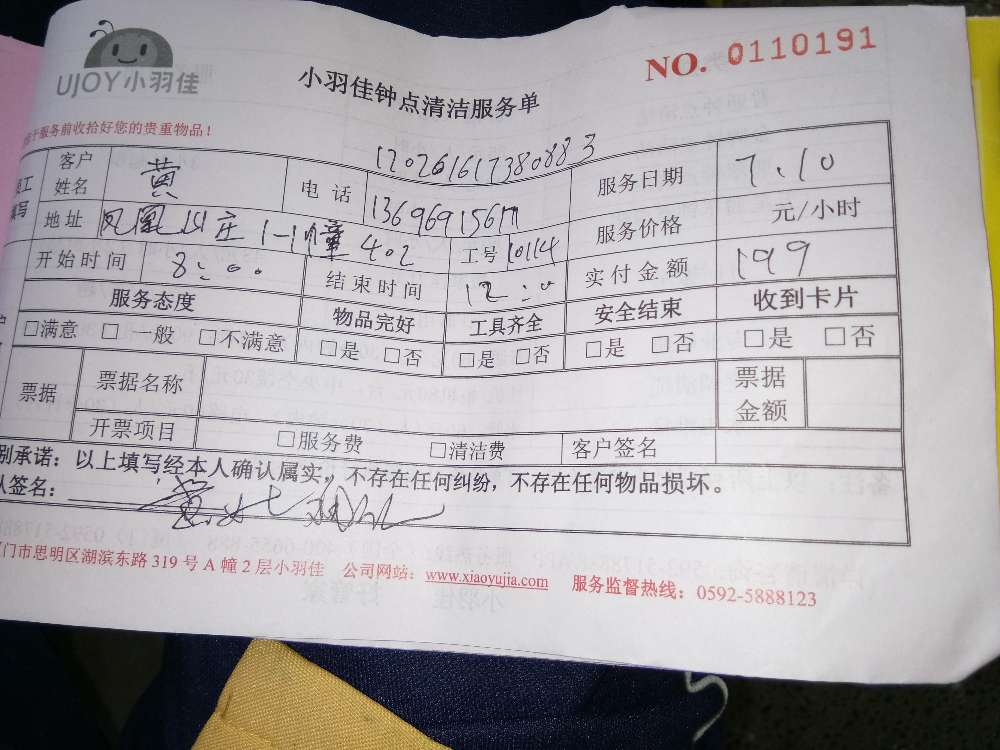 UJOY小羽佳
小羽佳钟点清洁服务单
NO. 0110191
服务前收拾好您的贵重物品！
客户姓名 黄 电话 服务日期 7.10
地址 凤凰山庄 402 工号 10114 服务价格 元/小时
开始时间 8:00 结束时间 12:0 实付金额 199
服务态度 物品完好 工具齐全 安全结束 收到卡片
□满意 □一般 □不满意 □是 □否 □是 □否 □是 □否 □是 □否
票据 票据名称 票据金额
开票项目 □服务费 □清洁费 客户签名
别承诺：以上填写经本人确认属实，不存在任何纠纷，不存在任何物品损坏。
签名：
门市思明区湖滨东路 319 号 A 幢 2 层小羽佳 公司网站：www.xiaoyujia.com 服务监督热线：0592-5888123